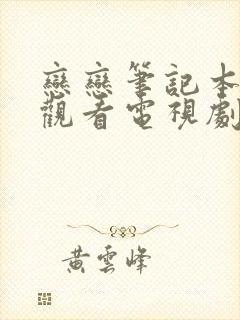 戀戀筆記本
觀看電視劇
黃雲峰